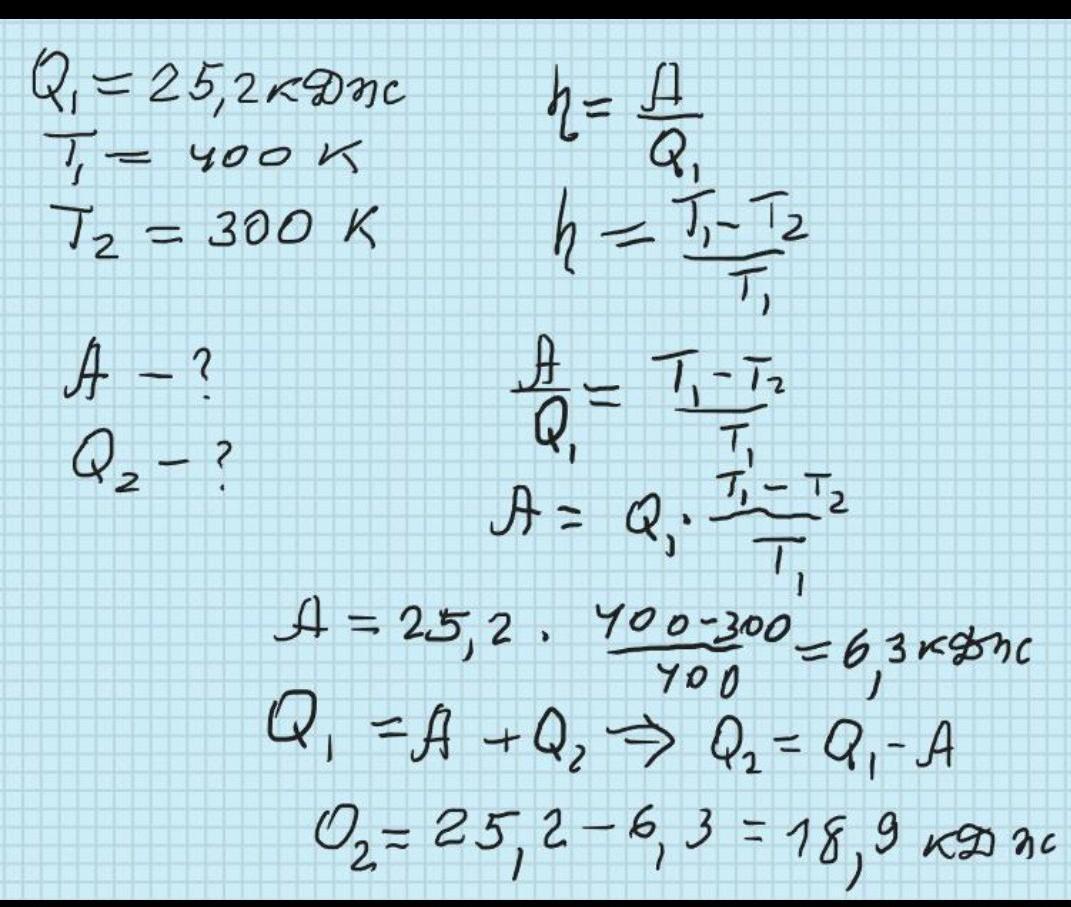 Q₁ = 25,2 кДж
T₁ = 400 К
T₂ = 300 К
A – ?
Q₂ – ?
η = A/Q₁
η = (T₁ - T₂)/T₁
A/Q₁ = (T₁ - T₂)/T₁
A = Q₁ · (T₁ - T₂)/T₁
A = 25,2 · (400-300)/400 = 6,3 кДж
Q₁ = A + Q₂ ⇒ Q₂ = Q₁ - A
Q₂ = 25,2 – 6,3 = 18,9 кДж